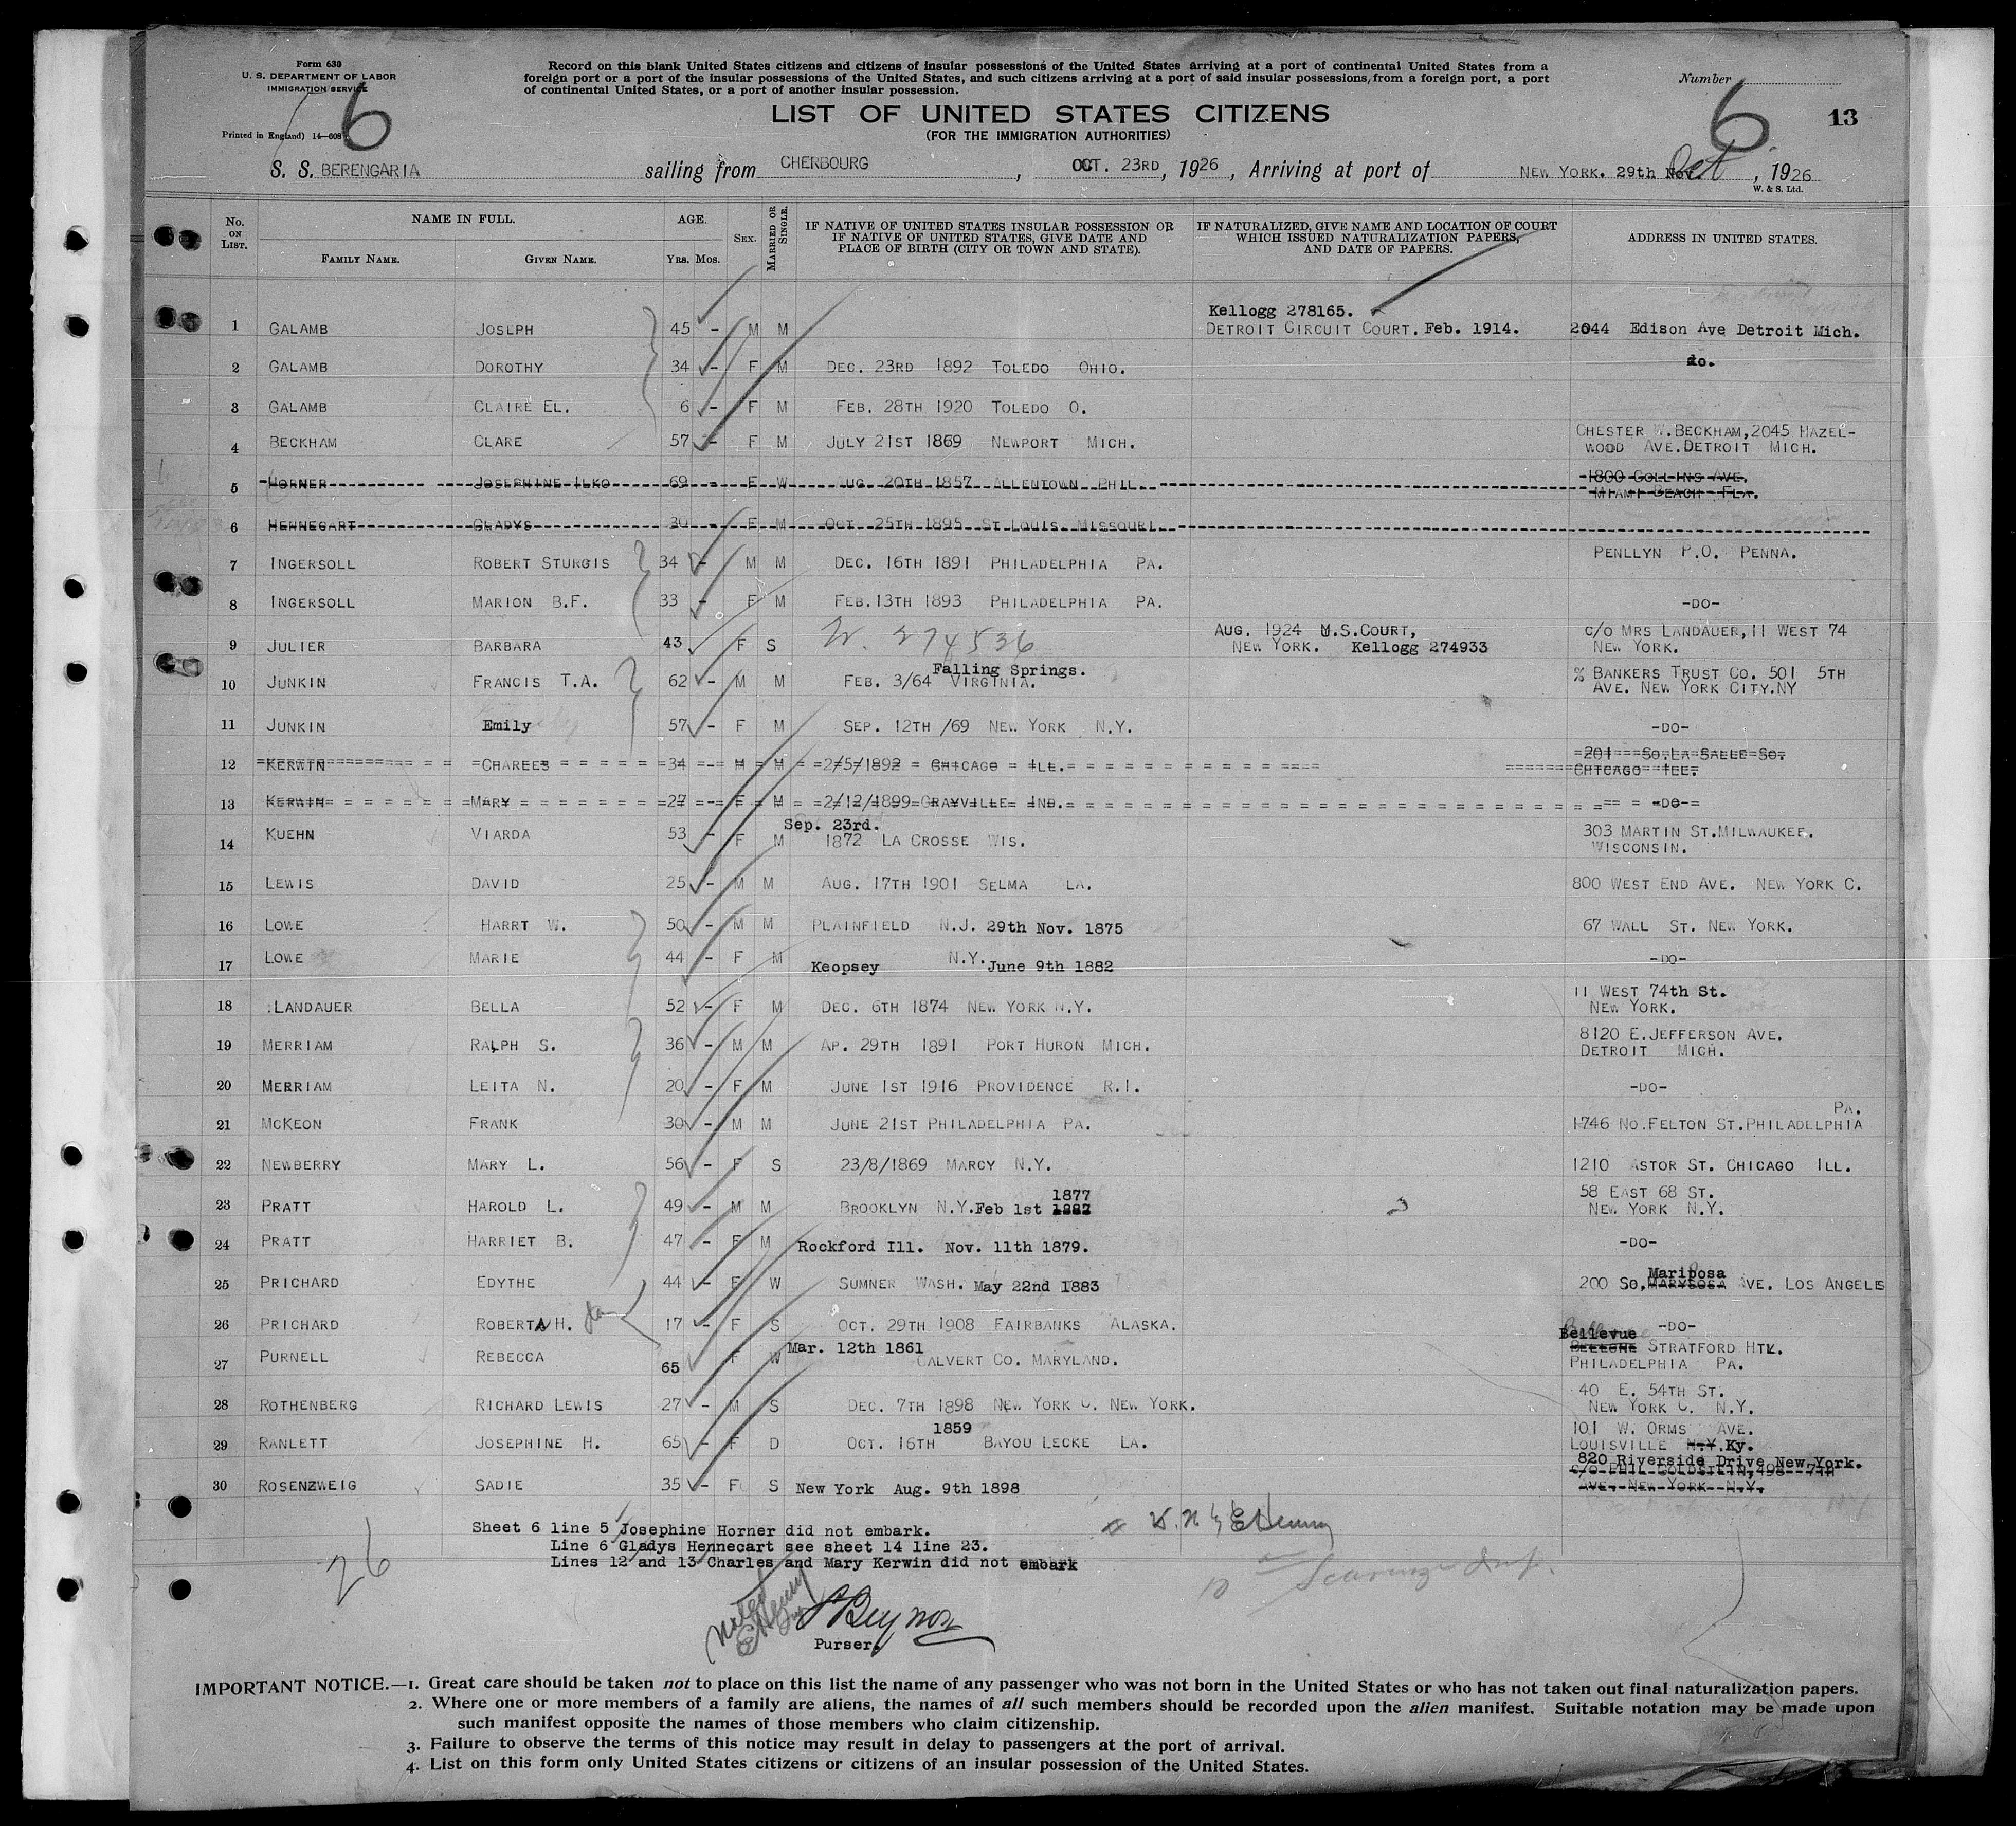 Form 630
U. S. DEPARTMENT OF LABOR
IMMIGRATION SERVICE
Printed in England) 14—608
6
Record on this blank United States citizens and citizens of insular possessions of the United States arriving at a port of continental United States from a
foreign port or a port of the insular possessions of the United States, and such citizens arriving at a port of said insular possessions, from a foreign port, a port
of continental United States, or a port of another insular possession.
Number
6
13
LIST OF UNITED STATES CITIZENS
(FOR THE IMMIGRATION AUTHORITIES)
S. S. BERENGARIA sailing from CHERBOURG, OCT. 23RD, 1926, Arriving at port of NEW YORK. 29th Nov Oct, 1926
W. & S. Ltd.
No. ON LIST. NAME IN FULL. FAMILY NAME. GIVEN NAME. AGE. YRS. MOS. SEX. MARRIED OR SINGLE. IF NATIVE OF UNITED STATES INSULAR POSSESSION OR IF NATIVE OF UNITED STATES, GIVE DATE AND PLACE OF BIRTH (CITY OR TOWN AND STATE). IF NATURALIZED, GIVE NAME AND LOCATION OF COURT WHICH ISSUED NATURALIZATION PAPERS, AND DATE OF PAPERS. ADDRESS IN UNITED STATES.
Kellogg 278165.
1 GALAMB JOSEPH 45 - M M DETROIT CIRCUIT COURT, Feb. 1914. 2044 Edison Ave Detroit Mich.
2 GALAMB DOROTHY 34 - F M DEC. 23RD 1892 TOLEDO OHIO. do.
3 GALAMB CLAIRE EL. 6 - F M FEB. 28TH 1920 TOLEDO O.
4 BECKHAM CLARE 57 - F M JULY 21ST 1869 NEWPORT MICH. CHESTER W. BECKHAM, 2045 HAZEL-
WOOD AVE. DETROIT MICH.
5 HORNER JOSEPHINE ILKO 69 - F W AUG. 20TH 1857 ALLENTOWN PHIL. 1800 COLLINS AVE.
MIAMI BEACH FLA.
6 HENNECART GLADYS 30 - F M OCT. 25TH 1895 ST LOUIS MISSOURI.
7 INGERSOLL ROBERT STURGIS 34 - M M DEC. 16TH 1891 PHILADELPHIA PA. PENLLYN P.O. PENNA.
8 INGERSOLL MARION B.F. 33 - F M FEB. 13TH 1893 PHILADELPHIA PA. -DO-
9 JULIER BARBARA 43 F S 274536 AUG. 1924 U.S. COURT, NEW YORK. Kellogg 274933 C/O MRS LANDAUER, 11 WEST 74
NEW YORK.
10 JUNKIN FRANCIS T.A. 62 - M M FEB. 3/64 Falling Springs. VIRGINIA. % BANKERS TRUST CO. 501 5TH
AVE. NEW YORK CITY. NY
11 JUNKIN Emily 57 - F M SEP. 12TH /69 NEW YORK N.Y. -DO-
12 KERWIN CHARLES 34 - M M 2/5/1892 CHICAGO ILL. 201 SO. LA SALLE SO.
CHICAGO ILL.
13 KERWIN MARY 27 - F M 2/12/1899 GRAYVILLE IND. -DO-
14 KUEHN VIARDA 53 - F M Sep. 23rd. 1872 LA CROSSE WIS. 303 MARTIN ST. MILWAUKEE.
WISCONSIN.
15 LEWIS DAVID 25 - M M AUG. 17TH 1901 SELMA LA. 800 WEST END AVE. NEW YORK C.
16 LOWE HARRT W. 50 - M M PLAINFIELD N.J. 29th Nov. 1875 67 WALL ST. NEW YORK.
17 LOWE MARIE 44 - F M Keopsey N.Y. June 9th 1882 -DO-
18 LANDAUER BELLA 52 - F M DEC. 6TH 1874 NEW YORK N.Y. 11 WEST 74th St.
NEW YORK.
19 MERRIAM RALPH S. 36 - M M AP. 29TH 1891 PORT HURON MICH. 8120 E. JEFFERSON AVE.
DETROIT MICH.
20 MERRIAM LEITA N. 20 - F M JUNE 1ST 1916 PROVIDENCE R.I. -DO-
21 MCKEON FRANK 30 - M M JUNE 21ST PHILADELPHIA PA. 1746 NO. FELTON ST. PHILADELPHIA PA.
22 NEWBERRY MARY L. 56 - F S 23/8/1869 MARCY N.Y. 1210 ASTOR ST. CHICAGO ILL.
23 PRATT HAROLD L. 49 - M M BROOKLYN N.Y. Feb 1st 1887 1877 58 EAST 68 ST.
NEW YORK N.Y.
24 PRATT HARRIET B. 47 - F M Rockford Ill. Nov. 11th 1879. -DO-
25 PRICHARD EDYTHE 44 - F W SUMNER WASH. May 22nd 1883 200 SO. MARYSOSA Mariposa AVE. LOS ANGELS
26 PRICHARD ROBERTA H. 17 - F S OCT. 29TH 1908 FAIRBANKS ALASKA. -DO-
27 PURNELL REBECCA 65 F W Mar. 12th 1861 CALVERT CO. MARYLAND. Bellevue STRATFORD HTL.
PHILADELPHIA PA.
28 ROTHENBERG RICHARD LEWIS 27 - M S DEC. 7TH 1898 NEW YORK C. NEW YORK. 40 E. 54TH ST.
NEW YORK C. N.Y.
29 RANLETT JOSEPHINE H. 65 - F D OCT. 16TH 1859 BAYOU LECKE LA. 101 W. ORMS AVE.
LOUISVILLE N.Y. Ky.
30 ROSENZWEIG SADIE 35 - F S New York Aug. 9th 1898 820 Riverside Drive New York.
C/O PHIL GOLDSTEIN, 498 7TH
AVE. NEW YORK N.Y.
Sheet 6 line 5 Josephine Horner did not embark.
Line 6 Gladys Hennecart see sheet 14 line 23.
Lines 12 and 13 Charles and Mary Kerwin did not embark
26
Noted
Purser.
IMPORTANT NOTICE.—1. Great care should be taken not to place on this list the name of any passenger who was not born in the United States or who has not taken out final naturalization papers.
2. Where one or more members of a family are aliens, the names of all such members should be recorded upon the alien manifest. Suitable notation may be made upon
such manifest opposite the names of those members who claim citizenship.
3. Failure to observe the terms of this notice may result in delay to passengers at the port of arrival.
4. List on this form only United States citizens or citizens of an insular possession of the United States.